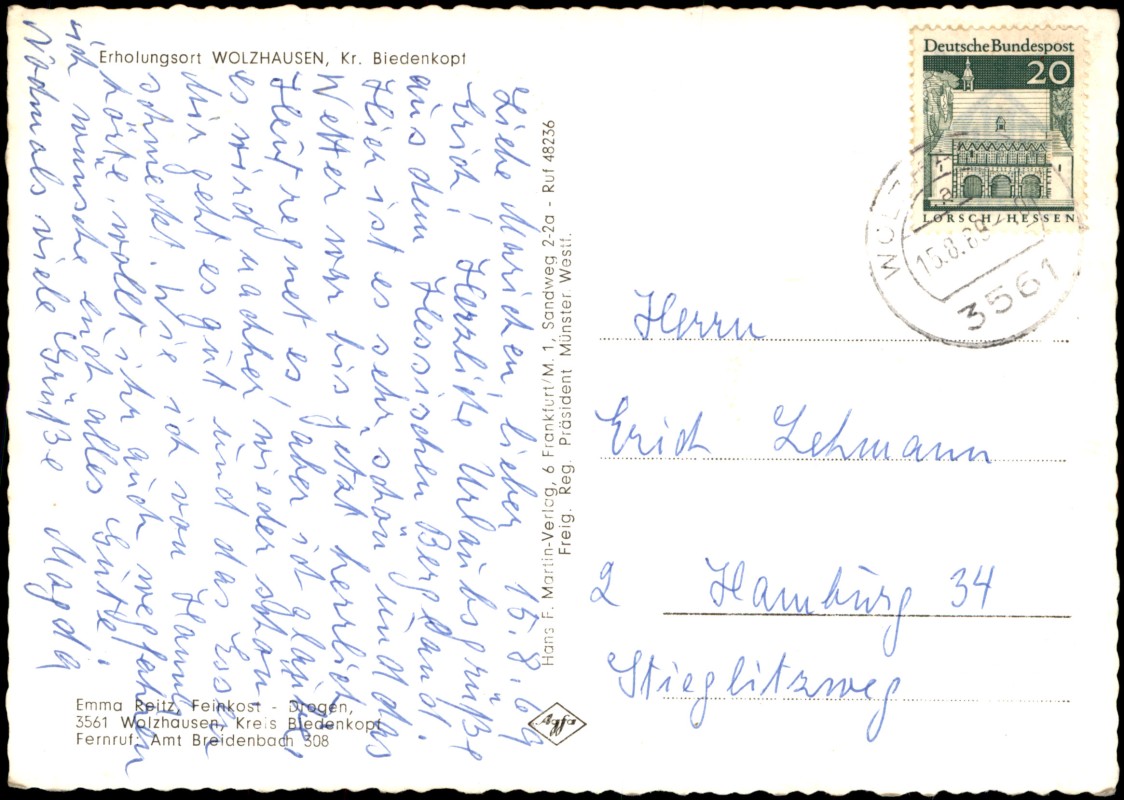 Erholungsort WOLZHAUSEN, Kr. Biedenkopf
15.8.69
Liebe Mariechen lieber
Erich! Herzliche Urlaubsgrüße
aus dem Hessischen Bergland.
Hier ist es sehr schön und das
Wetter war bis jetzt herrlich.
Heut regnet es, aber ich glaube,
es wird nachher wieder schön
Mir geht es gut und das Essen
schmeckt. Wie ich von Hanne
hörte, wollt ihr auch wegfahren
ich wünsche euch alles Gute.
Nochmals viele Grüße Magda
Emma Reitz, Feinkost - Drogen,
3561 Wolzhausen, Kreis Biedenkopf
Fernruf: Amt Breidenbach 308
Hans F. Martin-Verlag, 6 Frankfurt/M. 1, Sandweg 2-2a - Ruf 48236
Freig. Reg. Präsident Münster Westf.
Agfa
Deutsche Bundespost
20
LORSCH/HESSEN
3561
a
15.8.69
Herrn
Erich Lehmann
2 Hamburg 34
Stieglitzweg